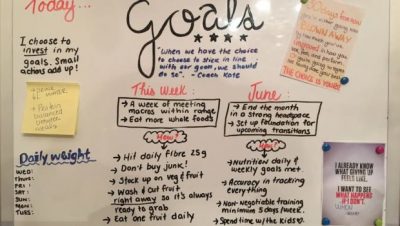 Today...
I choose to
invest in my
goals. Small
actions add up!
Protein
balanced
between
meals
Daily weight
WED:
THU:
FRI:
SAT:
SUN:
MON:
TUES:
Goals
"When we have the choice
to choose to stick in line
with our goals, we should
do so." - Coach Kate
This Week:
→ A week of meeting
macros within range
→ Eat more whole foods
How?
→ Hit daily fibre 25g
→ Don't buy junk!
→ Stock up on veg & fruit
→ Wash & cut fruit
right away so it's always
ready to grab
→ Eat one fruit daily
June:
→ End the month
in a strong headspace
→ Set up foundation for
upcoming transitions
How?
→ Nutrition daily &
weekly goals met
→ Accuracy in tracking
everything
→ Non-negotiable training
minimum 5 days/week.
→ Spend time w/the kids♡
30 days from now
BLOWN AWAY
THE CHOICE IS YOURS!
I ALREADY KNOW
WHAT GIVING UP
FEELS LIKE.
I WANT TO SEE
WHAT HAPPENS
IF I DON'T.